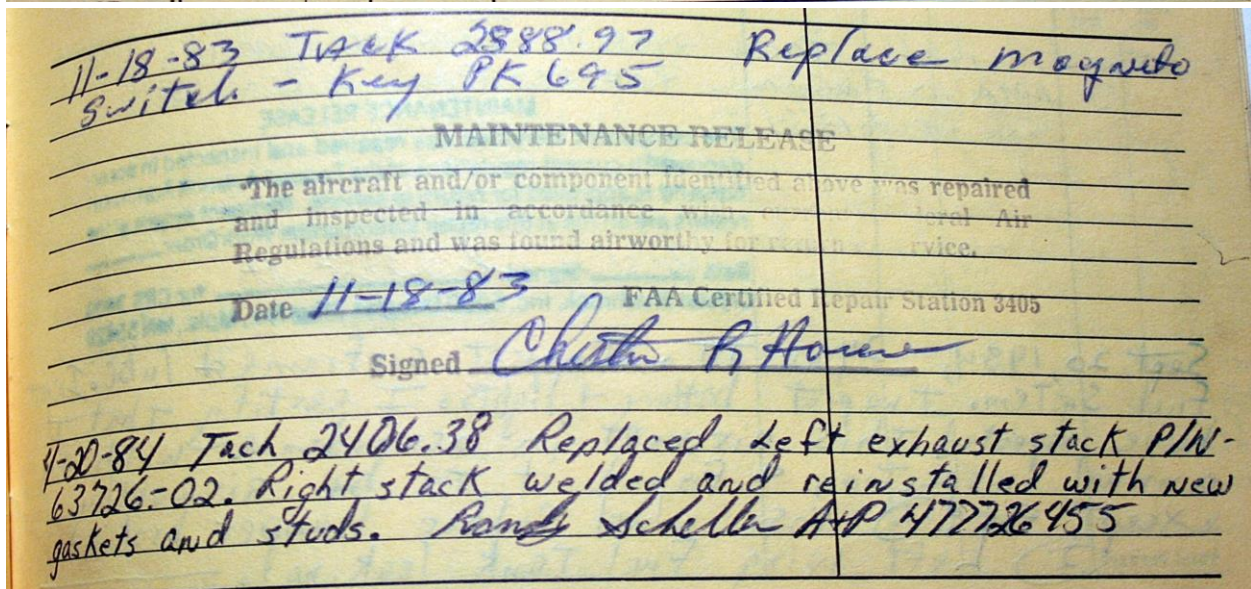 11-18-83 TACK 2388.97 Replace magneto
Switch - Key PK 695
MAINTENANCE RELEASE
The aircraft and/or component identified above was repaired
and inspected in accordance with Air
Regulations and was found airworthy for
Date 11-18-83 FAA Certified Repair Station 3405
Signed
4-20-84 Tach 2406.38 Replaced Left exhaust stack P/N-
63726-02. Right stack welded and reinstalled with new
gaskets and studs. Randy A+P 477726455